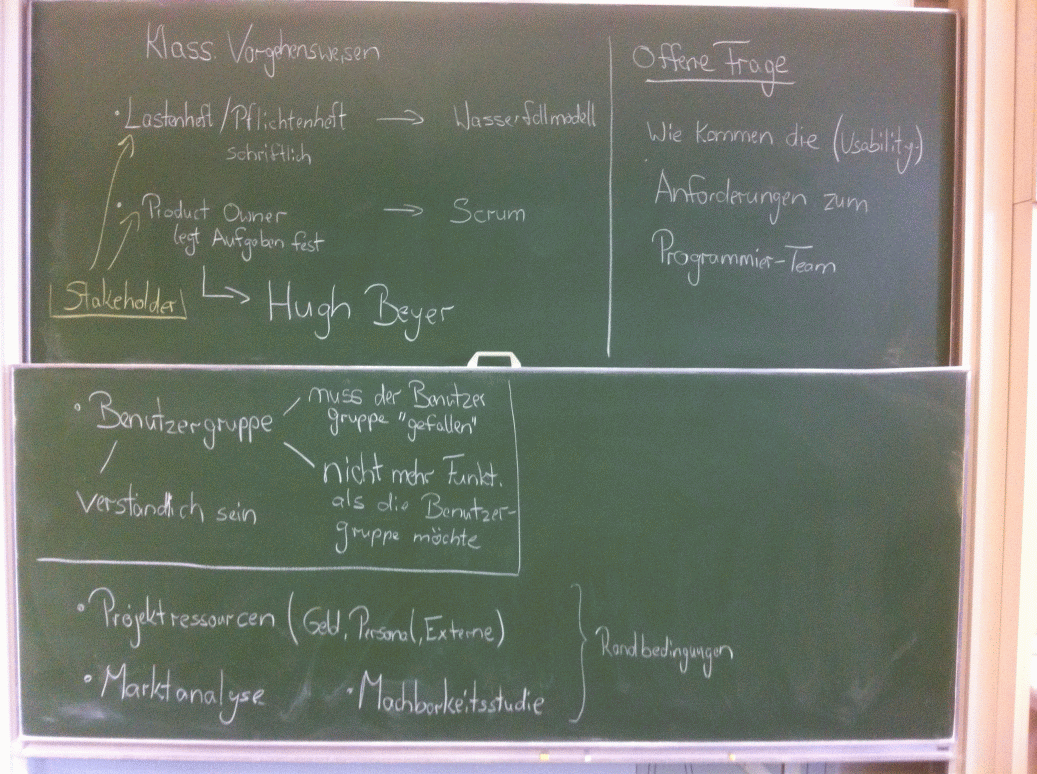 Klass. Vorgehensweisen
• Lastenheft / Pflichtenheft → Wasserfallmodell
schriftlich
• Product Owner → Scrum
legt Aufgaben fest
Stakeholder
Hugh Beyer
Offene Frage
Wie kommen die (Usability-)
Anforderungen zum
Programmier-Team
• Benutzergruppe
muss der Benutzer
gruppe "gefallen"
nicht mehr Funkt.
als die Benutzer-
gruppe möchte
verständlich sein
• Projektressourcen (Geld, Personal, Externe)
• Marktanalyse • Machbarkeitsstudie
Randbedingungen